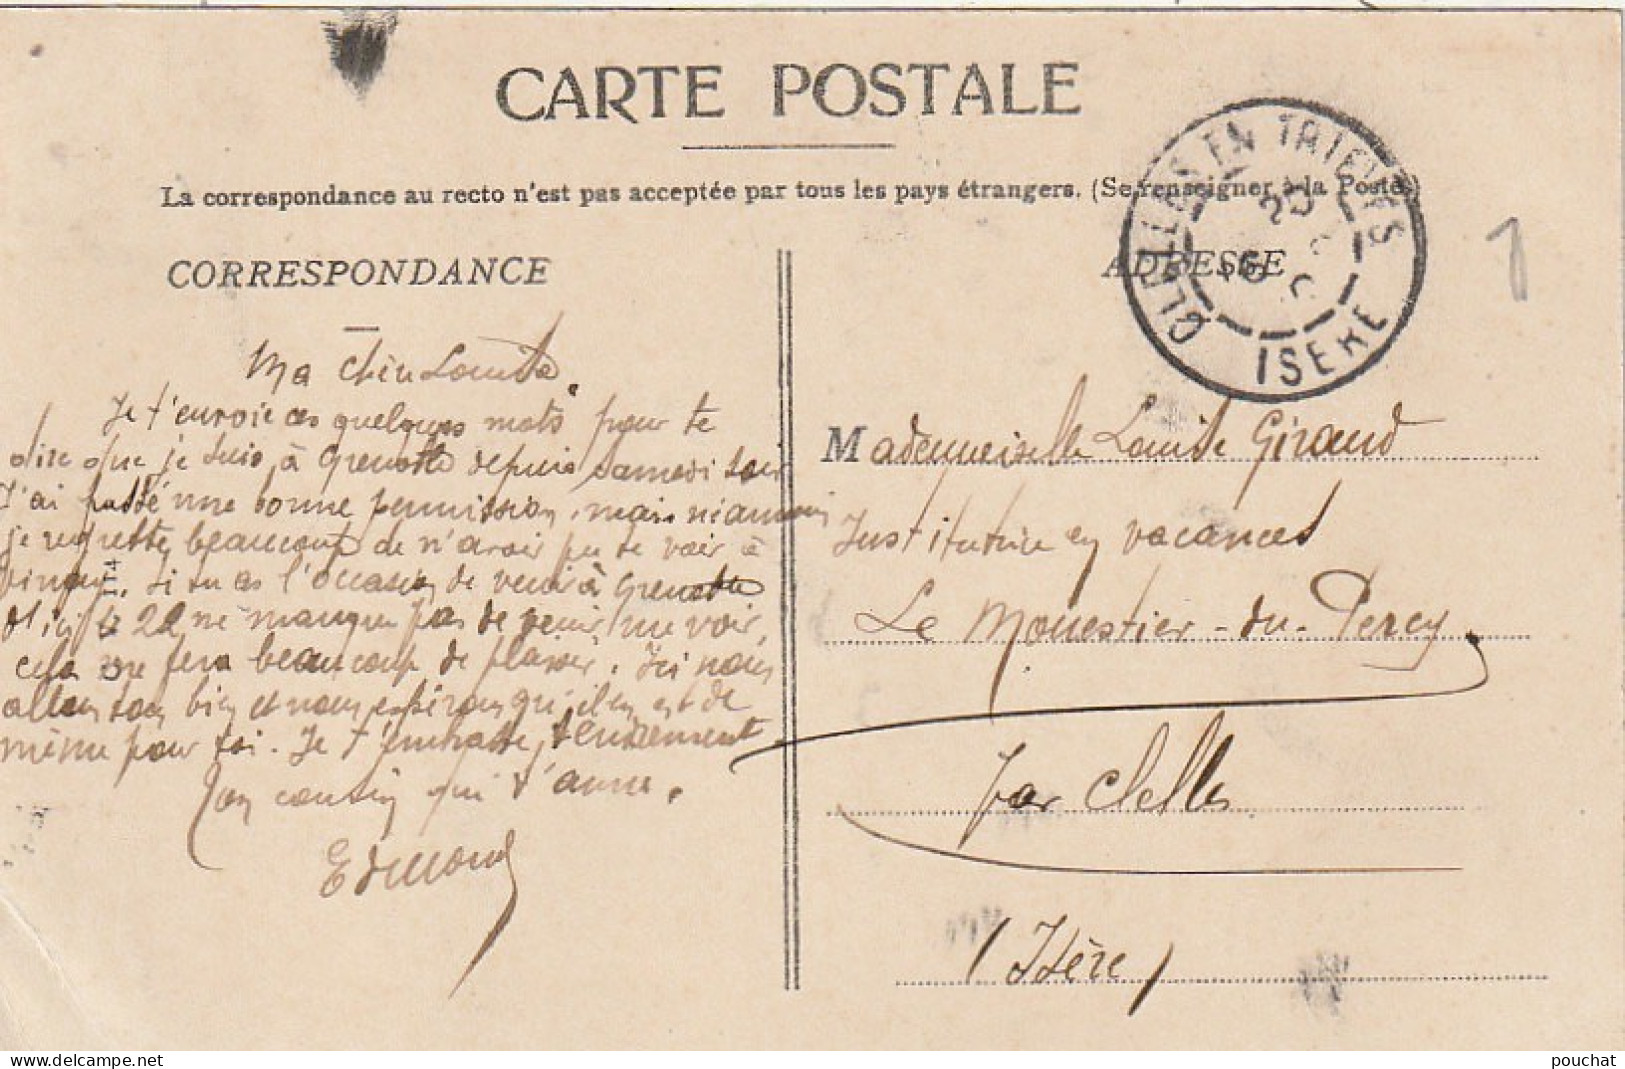 CARTE POSTALE
La correspondance au recto n'est pas acceptée par tous les pays étrangers. (Se renseigner à la Poste.)
CORRESPONDANCE
Ma chère Louise
Je t'envoie ces quelques mots pour te
dire que je suis à Grenoble depuis samedi soir
J'ai passé une bonne permission, mais néanmoins
je regrette beaucoup de n'avoir pu te voir à
Si tu as l'occasion de venir à Grenoble
d'ici le 22 ne manque pas de venir me voir,
cela me fera beaucoup de plaisir. Ici nous
allons tous bien et nous espérons qu'il en est de
même pour toi. Je t'embrasse tendrement
Ton cousin qui t'aime.
Edmond
ADRESSE
CLELLES EN TRIEVES
ISERE
1
Mademoiselle Louise Giraud
Institutrice en vacances
Le Monestier-du-Percy
par Clelles
(Isère)
pouchat